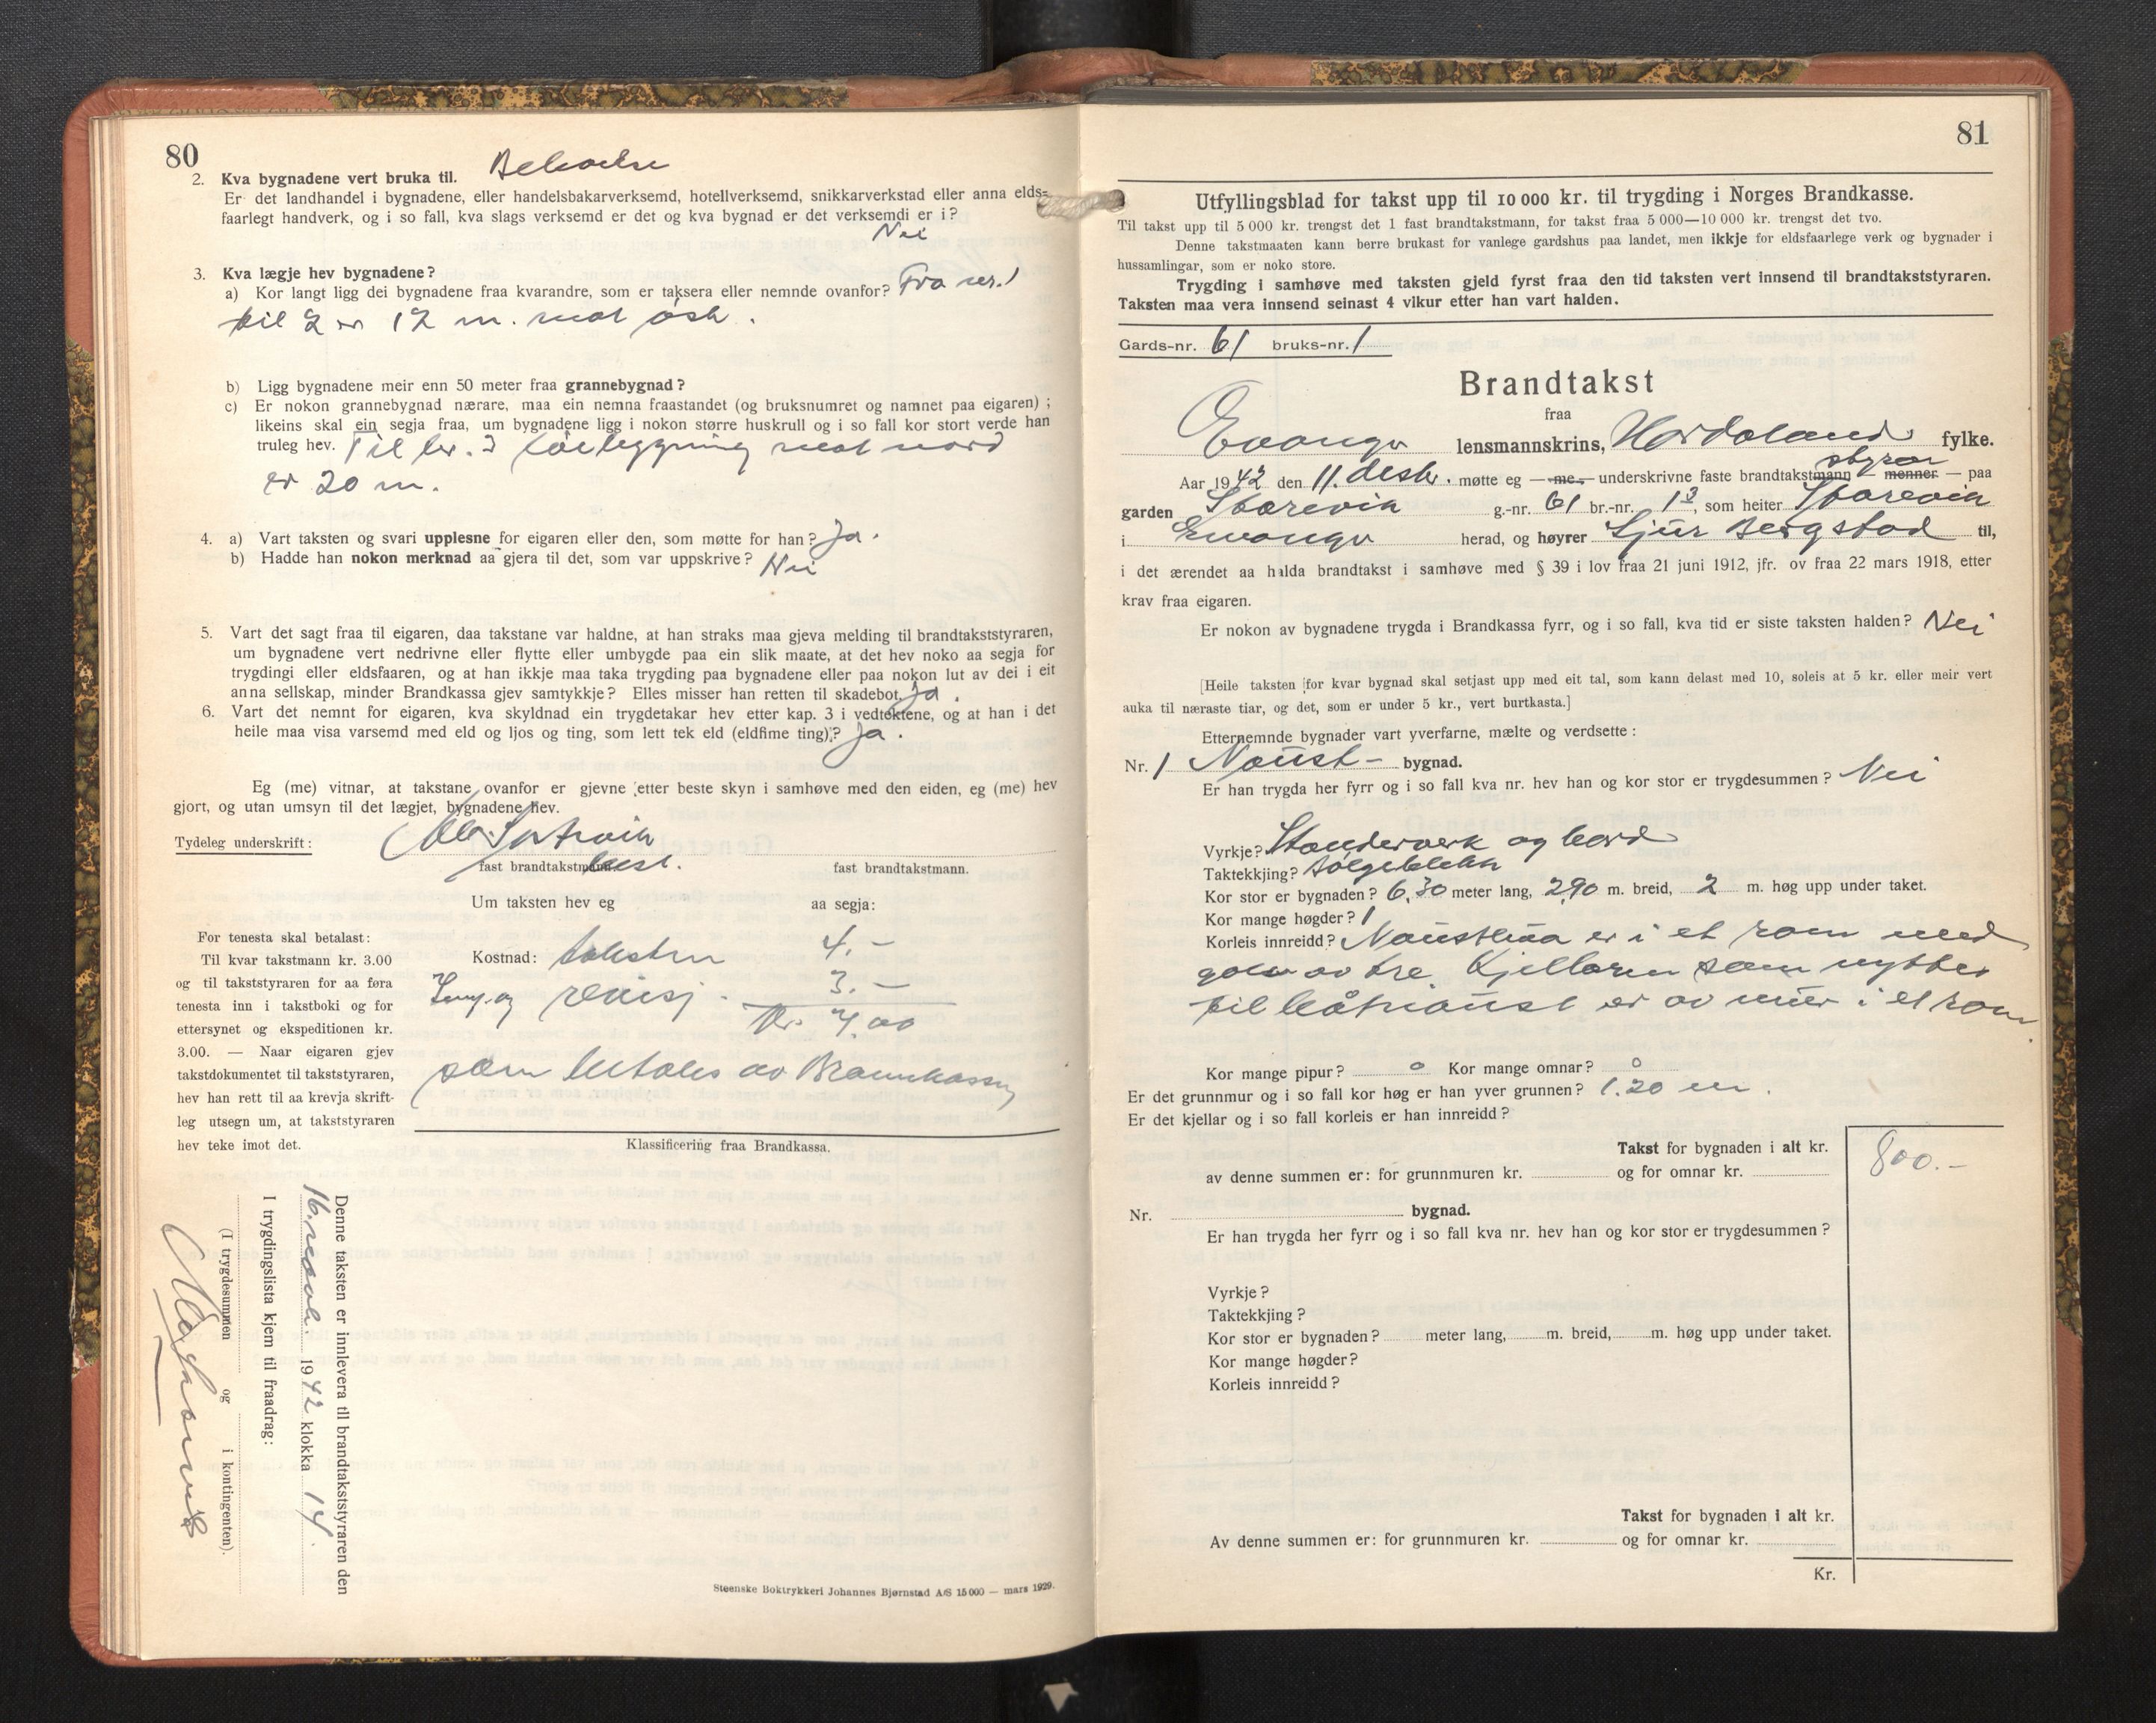 80
2. Kva bygnadene vert bruka til. Beboelse
Er det landhandel i bygnadene, eller handelsbakarverksemd, hotellverksemd, snikkarverkstad eller anna elds-
faarlegt handverk, og i so fall, kva slags verksemd er det og kva bygnad er det verksemdi er i?
Nei
3. Kva lægje hev bygnadene?
a) Kor langt ligg dei bygnadene fraa kvarandre, som er taksera eller nemnde ovanfor? Fra nr. 1
til 2 er 12 m. mot
b) Ligg bygnadene meir enn 50 meter fraa grannebygnad?
c) Er nokon grannebygnad nærare, maa ein nemna fraastandet (og bruksnumret og namnet paa eigaren);
likeins skal ein segja fraa, um bygnadene ligg i nokon større huskrull og i so fall kor stort verde han
truleg hev. Til br. 3 mot nord
er 20 m.
4. a) Vart taksten og svari upplesne for eigaren eller den, som møtte for han? Ja.
b) Hadde han nokon merknad aa gjera til det, som var uppskrive? Nei
5. Vart det sagt fraa til eigaren, daa takstane var haldne, at han straks maa gjeva melding til brandtakststyraren,
um bygnadene vert nedrivne eller flytte eller umbygde paa ein slik maate, at det hev noko aa segja for
trygdingi eller eldsfaaren, og at han ikkje maa taka trygding paa bygnadene eller paa nokon lut av dei i eit
anna sellskap, minder Brandkassa gjev samtykkje? Elles misser han retten til skadebot. Ja.
6. Vart det nemnt for eigaren, kva skyldnad ein trygdetakar hev etter kap. 3 i vedtektene, og at han i det
heile maa visa varsemd med eld og ljos og ting, som lett tek eld (eldfime ting)? Ja.
Eg (me) vitnar, at takstane ovanfor er gjevne etter beste skyn i samhøve med den eiden, eg (me) hev
gjort, og utan umsyn til det lægjet, bygnadene hev.
Tydeleg underskrift:
fast brandtakstmann. fast brandtakstmann.
Um taksten hev eg aa segja:
For tenesta skal betalast:
Til kvar takstmann kr. 3.00
og til takststyraren for aa føra
tenesta inn i takstboki og for
ettersynet og ekspeditionen kr.
3.00. — Naar eigaren gjev
takstdokumentet til takststyraren,
hev han rett til aa krevja skrift-
leg utsegn um, at takststyraren
hev teke imot det.
Kostnad: taksten 4.-
og revisj. 3.-
Kr. 7.00
som betales av Brannkassen
Klassificering fraa Brandkassa.
Denne taksten er innlevera til brandtakststyraren den
16. 1942 klokka 14.
I trygdingslista kjem til fraadrag:
(I trygdesummen og i kontingenten).
Steenske Boktrykkeri Johannes Bjørnstad A/S 15 000 — mars 1929.
81
Utfyllingsblad for takst upp til 10 000 kr. til trygding i Norges Brandkasse.
Til takst upp til 5 000 kr. trengst det 1 fast brandtakstmann, for takst fraa 5 000—10 000 kr. trengst det tvo.
Denne takstmaaten kann berre brukast for vanlege gardshus paa landet, men ikkje for eldsfaarlege verk og bygnader i
hussamlingar, som er noko store.
Trygding i samhøve med taksten gjeld fyrst fraa den tid taksten vert innsend til brandtakststyraren.
Taksten maa vera innsend seinast 4 vikur etter han vart halden.
Gards-nr. 61 bruks-nr. 1
Brandtakst
fraa
Evanger lensmannskrins, Hordaland fylke.
Aar 1942 den 11. desbr. møtte eg — me — underskrivne faste brandtakstmann styrar — menner — paa
garden Storevik g.-nr. 61 br.-nr. 1 3, som heiter Storevik
i Evanger herad, og høyrer Sjur Bergstad til,
i det ærendet aa halda brandtakst i samhøve med § 39 i lov fraa 21 juni 1912, jfr. ov fraa 22 mars 1918, etter
krav fraa eigaren.
Er nokon av bygnadene trygda i Brandkassa fyrr, og i so fall, kva tid er siste taksten halden? Nei
[Heile taksten for kvar bygnad skal setjast upp med eit tal, som kann delast med 10, soleis at 5 kr. eller meir vert
auka til næraste tiar, og det, som er under 5 kr., vert burtkasta.]
Etternemnde bygnader vart yverfarne, mælte og verdsette:
Nr. 1 Naust- bygnad.
Er han trygda her fyrr og i so fall kva nr. hev han og kor stor er trygdesummen? Nei
Vyrkje? Stenderverk og bord
Taktekkjing? Bølgeblekk
Kor stor er bygnaden? 6,30 meter lang, 2,90 m. breid, 2 m. høg upp under taket.
Kor mange høgder? 1
Korleis innreidd? Naustbua er i et rom med
golv av tre. Kjelleren som nyttes
til båtnaust er av mur i et rom
Kor mange pipur? 0 Kor mange omnar? 0
Er det grunnmur og i so fall kor høg er han yver grunnen? 1.20 m.
Er det kjellar og i so fall korleis er han innreidd?
Takst for bygnaden i alt kr. 800.-
av denne summen er: for grunnmuren kr. og for omnar kr.
Nr. bygnad.
Er han trygda her fyrr og i so fall kva nr. hev han og kor stor er trygdesummen?
Vyrkje?
Taktekkjing?
Kor stor er bygnaden? meter lang, m. breid, m. høg upp under taket.
Kor mange høgder?
Korleis innreidd?
Takst for bygnaden i alt kr.
Av denne summen er: for grunnmuren kr. og for omnar kr.
Kr.